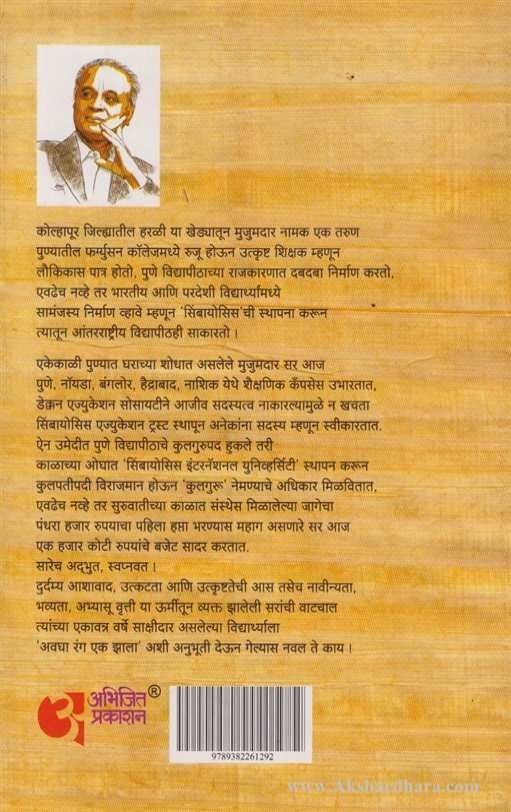 कोल्हापूर जिल्ह्यातील हरळी या खेड्यातून मुजुमदार नामक एक तरुण
पुण्यातील फर्ग्युसन कॉलेजमध्ये रुजू होऊन उत्कृष्ट शिक्षक म्हणून
लौकिकास पात्र होतो, पुणे विद्यापीठाच्या राजकारणात दबदबा निर्माण करतो,
एवढेच नव्हे तर भारतीय आणि परदेशी विद्यार्थ्यांमध्ये
सामंजस्य निर्माण व्हावे म्हणून 'सिंबायोसिस'ची स्थापना करून
त्यातून आंतरराष्ट्रीय विद्यापीठही साकारतो ।
एकेकाळी पुण्यात घराच्या शोधात असलेले मुजुमदार सर आज
पुणे, नॉयडा, बंगलोर, हैद्राबाद, नाशिक येथे शैक्षणिक कॅंपसेस उभारतात,
डेक्कन एज्युकेशन सोसायटीने आजीव सदस्यत्व नाकारल्यामुळे न खचता
सिंबायोसिस एज्युकेशन ट्रस्ट स्थापून अनेकांना सदस्य म्हणून स्वीकारतात.
ऐन उमेदीत पुणे विद्यापीठाचे कुलगुरुपद हुकले तरी
काळाच्या ओघात 'सिंबायोसिस इंटरनॅशनल युनिव्हर्सिटी' स्थापन करून
कुलपतीपदी विराजमान होऊन 'कुलगुरू' नेमण्याचे अधिकार मिळवितात,
एवढेच नव्हे तर सुरुवातीच्या काळात संस्थेस मिळालेल्या जागेचा
पंधरा हजार रुपयाचा पहिला हप्ता भरण्यास महाग असणारे सर आज
एक हजार कोटी रुपयांचे बजेट सादर करतात.
सारेच अद्भुत, स्वप्नवत ।
दुर्दम्य आशावाद, उत्कटता आणि उत्कृष्टतेची आस तसेच नावीन्यता,
भव्यता, अभ्यासू वृत्ती या ऊर्मीतून व्यक्त झालेली सरांची वाटचाल
त्यांच्या एकावन्न वर्षे साक्षीदार असलेल्या विद्यार्थ्याला
'अवघा रंग एक झाला' अशी अनुभूती देऊन गेल्यास नवल ते काय ।
अभिजित ®
प्रकाशन
9789382261292
www.Akshardhara.com